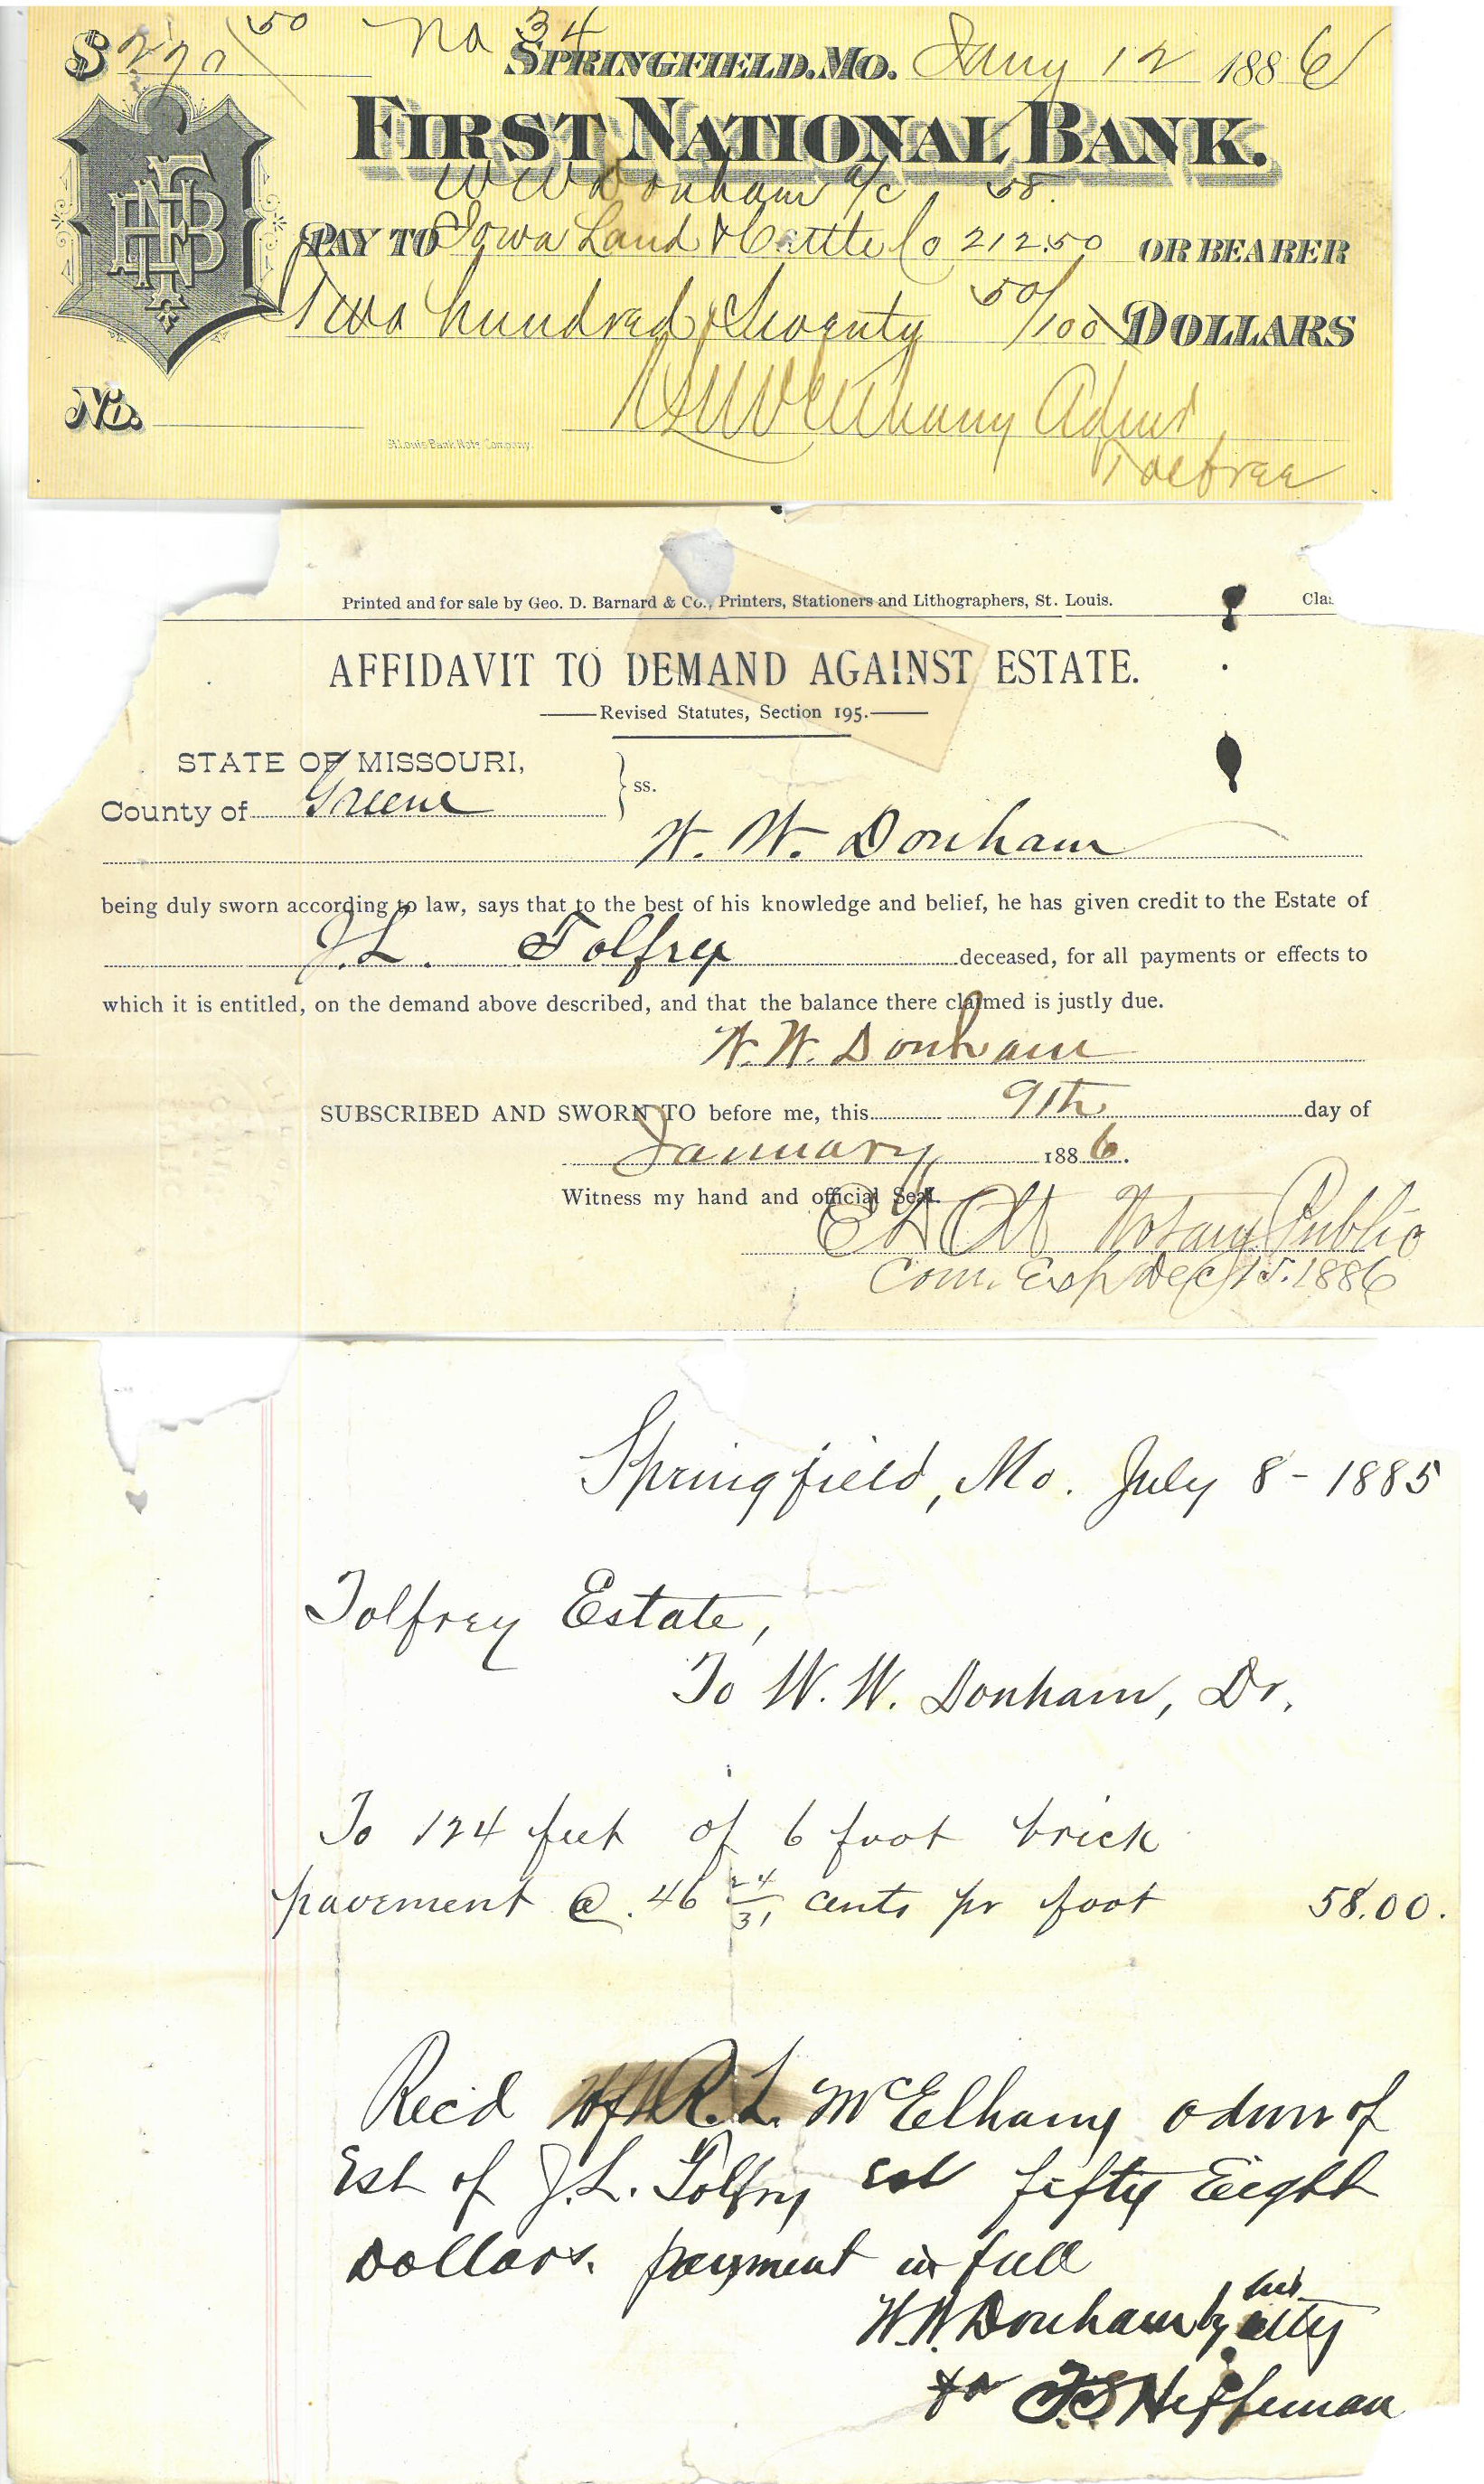 $ 270 50 No 34 SPRINGFIELD, MO. Jany 12 1886
FIRST NATIONAL BANK.
W W Donham a/c 58.
PAY TO Iowa Land & Cattle Co 212.50 OR BEARER
Two hundred & Seventy 50/100 DOLLARS
R L McElhany Admr
No.
St. Louis Bank Note Company.
Printed and for sale by Geo. D. Barnard & Co., Printers, Stationers and Lithographers, St. Louis.
AFFIDAVIT TO DEMAND AGAINST ESTATE.
Revised Statutes, Section 195.
STATE OF MISSOURI,
County of Greene ss.
W. W. Donham
being duly sworn according to law, says that to the best of his knowledge and belief, he has given credit to the Estate of
J. L. Tolfrey deceased, for all payments or effects to
which it is entitled, on the demand above described, and that the balance there claimed is justly due.
W. W. Donham
SUBSCRIBED AND SWORN TO before me, this 9th day of
January 1886.
Witness my hand and official Seal.
Notary Public
Com. Exp Dec 15. 1886
Springfield, Mo. July 8 - 1885
Tolfrey Estate,
To W. W. Donham, Dr.
To 124 feet of 6 foot brick
pavement @ .46 24/31 cents pr foot 58.00.
Rec'd of R. L. McElhany admr of
Est of J. L. Tolfry fifty Eight
Dollars. payment in full
W. W. Donham by his atty
T. S. Heffernan